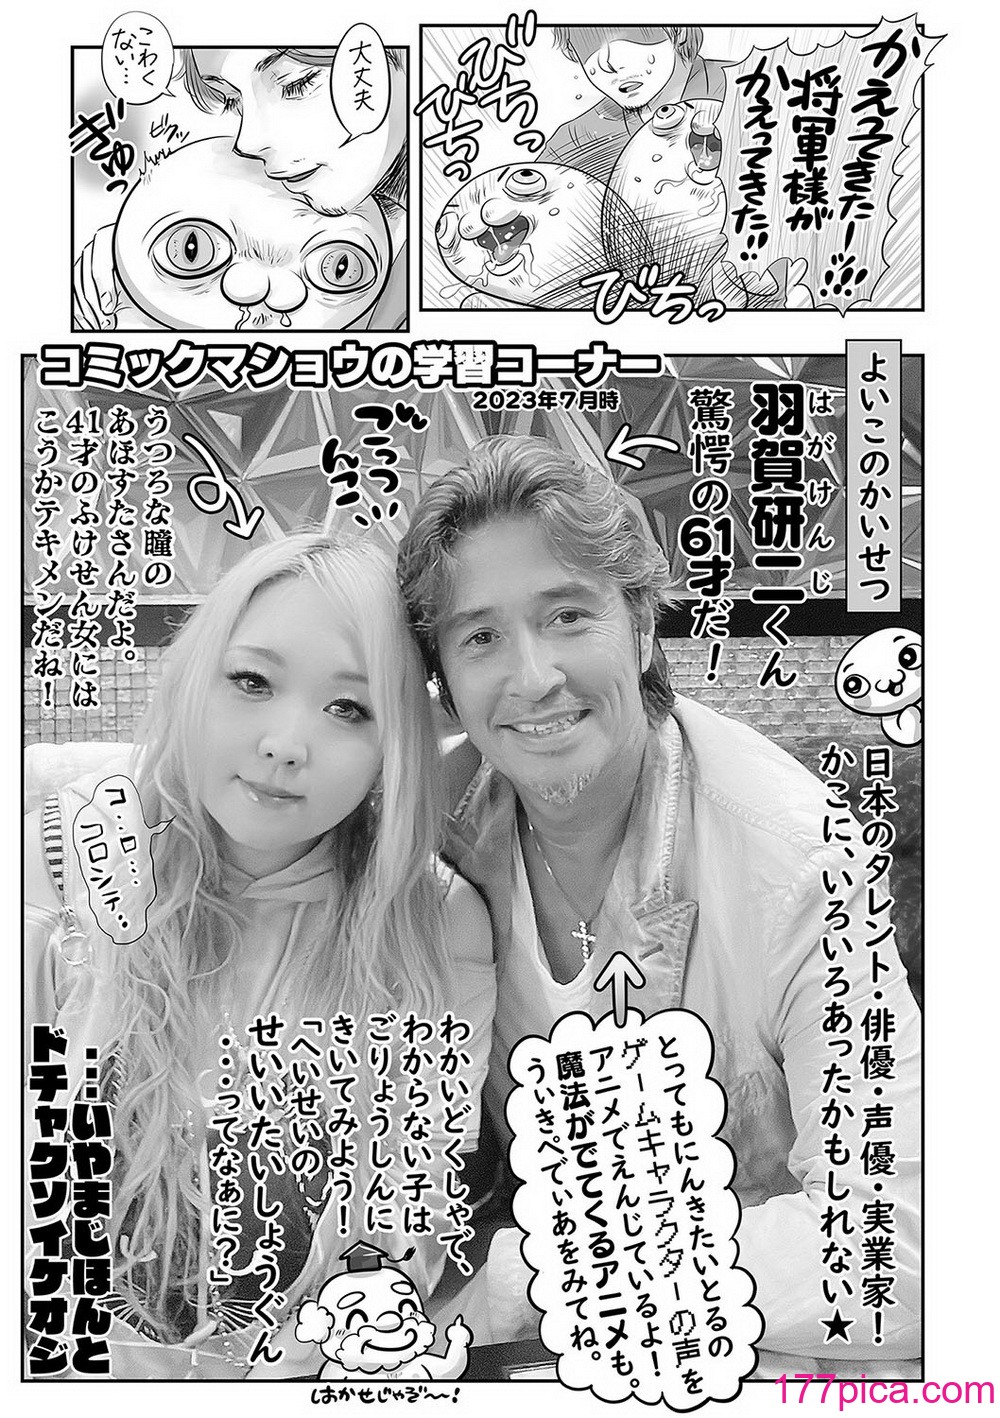 かえってきたー!!!
将軍様が
かえってきた!!
びちっ
びちっ
びちっ
大丈夫
こわく
ない…
ビクッ
ぎゅっ
コミックマショウの学習コーナー
2023年7月時
よいこのかいせつ
はがけんじ
羽賀研二くん
驚愕の61才だ!
ごっつ
んこ
うつろな瞳の
あほすたさんだよ。
41才のふけせん女には
こうかテキメンだね!
日本のタレント・俳優・声優・実業家!
かこに、いろいろあったかもしれない★
コ…ロ…
コロンテ…
とってもにんきたいとるの
ゲームキャラクターの声を
アニメでえんじているよ!
魔法がでてくるアニメも。
うぃきぺでぃあをみてね。
わかいどくしゃで、
わからない子は
ごりょうしんに
きいてみよう!
「へいせいの
せいいたいしょうぐん
・・・ってなぁに?」
…いやまじほんと
ドチャクソイケオジ
はかせじゃぞ〜!
177pica.com